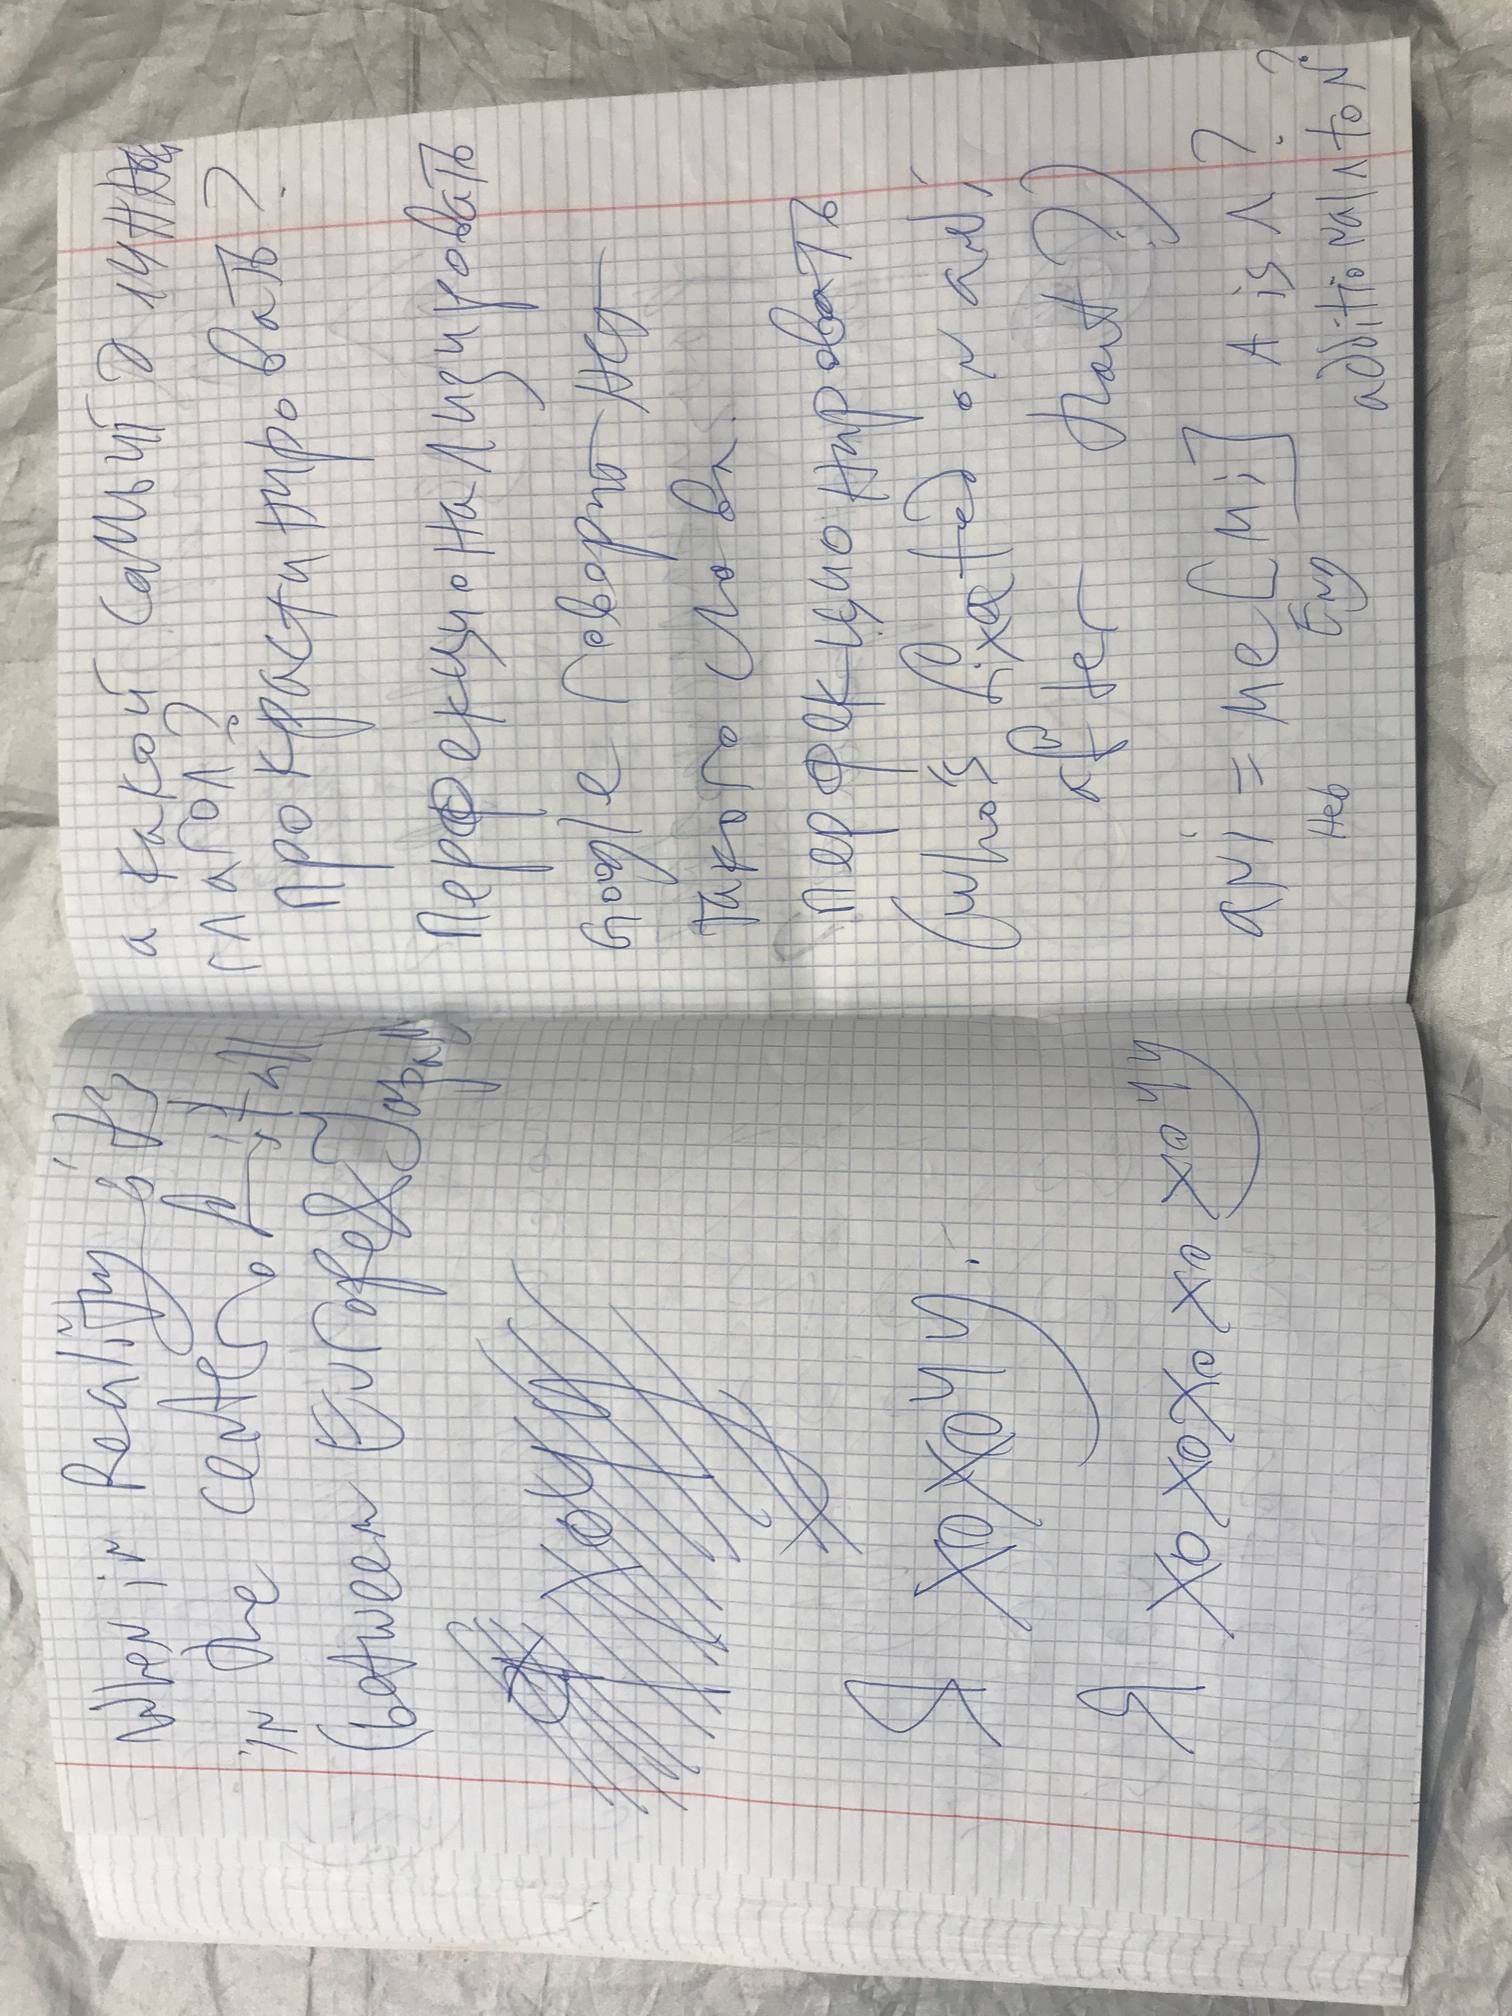 When in Reality it's
in the center of
(between Europe &
Я хохочу.
Я хохохохо хочу
а какой самый длинный
глагол?
Прокрастинировать?
Перфекционализировать
google говорит нет
такого слова.
перфекционировать
(who's fixated on ani,
after that?)
ani = me [mi] A is Λ ?
Heb Eng additional Λ to N?